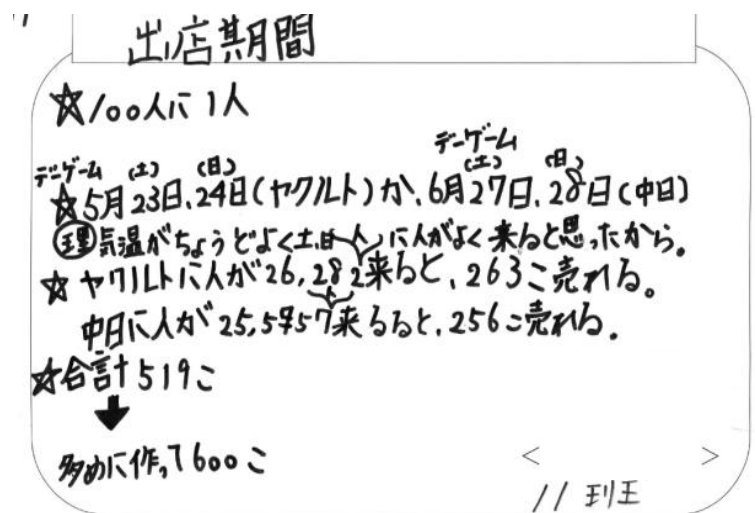 出店期間
☆100人に1人
デーゲーム
デーゲーム (土) (日) (土) (日)
☆5月23日、24日(ヤクルト)か、6月27日、28日(中日)
理 気温がちょうどよく土日に人がよく来ると思ったから。
☆ヤクルトに人が26,282人来ると、263こ売れる。
中日に人が25,557人来るると、256こ売れる。
☆合計519こ
↓
多めに作って600こ
< >
11班